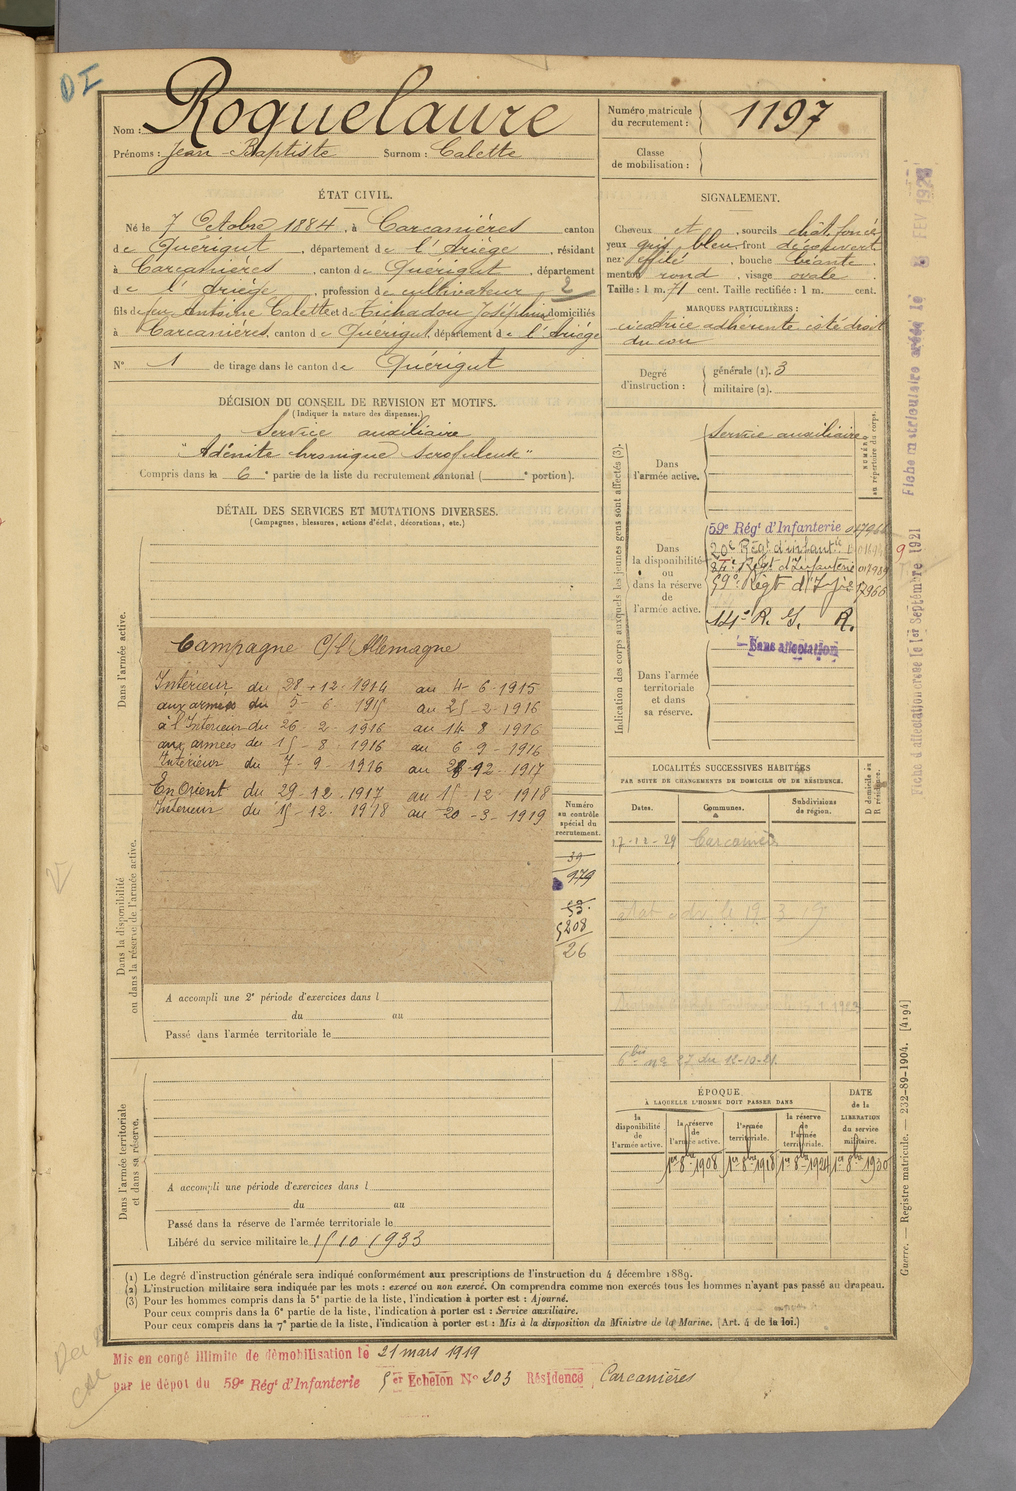 DI
Nom : Roquelaure
Prénoms : Jean-Baptiste Surnom : Calette
Numéro matricule du recrutement : 1197
Classe de mobilisation :
ÉTAT CIVIL.
Né le 7 Octobre 1884, à Carcanières canton
de Quérigut, département de l'Ariège, résidant
à Carcanières, canton de Quérigut, département
de l'Ariège, profession de cultivateur 2
fils de feu Antoine Calette et de Tichadou Joséphine domiciliés
à Carcanières, canton de Quérigut, département de l'Ariège
N° 1 de tirage dans le canton de Quérigut
SIGNALEMENT.
Cheveux et, sourcils chât. foncé
yeux gris bleu front découvert
nez effilé, bouche béante.
menton rond, visage ovale.
Taille : 1 m. 71 cent. Taille rectifiée : 1 m. cent.
MARQUES PARTICULIÈRES :
cicatrice adhérente côté droit
du cou
Degré d'instruction : générale (1). 3
militaire (2).
DÉCISION DU CONSEIL DE REVISION ET MOTIFS.
(Indiquer la nature des dispenses.)
Service auxiliaire
"Adénite chronique scrofuleuse"
Compris dans la 6e partie de la liste du recrutement cantonal ( e portion).
DÉTAIL DES SERVICES ET MUTATIONS DIVERSES.
(Campagnes, blessures, actions d'éclat, décorations, etc.)
Dans l'armée active.
Campagne C/ l'Allemagne
Intérieur du 28-12-1914 au 4-6-1915
aux armées du 5-6-1915 au 25-2-1916
à l'Intérieur du 26-2-1916 au 14 8 1916
aux armées du 15-8-1916 au 6-9-1916
Intérieur du 7-9-1916 au 28-12-1917
En Orient du 29-12-1917 au 15-12-1918
Intérieur du 15-12-1918 au 20-3-1919
Dans la disponibilité
ou dans la réserve de l'armée active.
Numéro au contrôle spécial du recrutement.
39
979
53.
5208
26
A accompli une 2e période d'exercices dans l
du au
Passé dans l'armée territoriale le
Dans l'armée territoriale et dans sa réserve.
A accompli une période d'exercices dans l
du au
Passé dans la réserve de l'armée territoriale le
Libéré du service militaire le 15 10 1933
Indication des corps auxquels les jeunes gens sont affectés (3).
NUMÉRO au répertoire du corps.
Dans l'armée active.
Service auxiliaire
Dans la disponibilité ou dans la réserve de l'armée active.
59e Régt d'Infanterie
20e Régt d'infantie
Régt d'Infanterie
59e Régt d'Infie
141e R. I. R.
Sans affectation
Dans l'armée territoriale et dans sa réserve.
LOCALITÉS SUCCESSIVES HABITÉES
PAR SUITE DE CHANGEMENTS DE DOMICILE OU DE RÉSIDENCE.
Dates. Communes. Subdivisions de région. D domicile ou R résidence.
17-12-29 Carcanières
6 bis n° 27 du 12-10-21.
ÉPOQUE
À LAQUELLE L'HOMME DOIT PASSER DANS
la disponibilité de l'armée active. la réserve de l'armée active. l'armée territoriale. la réserve de l'armée territoriale.
DATE de la LIBÉRATION du service militaire.
1er 8bre 1908 1er 8bre 1918 1er 8bre 1924 1er 8bre 1930
(1) Le degré d'instruction générale sera indiqué conformément aux prescriptions de l'instruction du 4 décembre 1889.
(2) L'instruction militaire sera indiquée par les mots : exercé ou non exercé. On comprendra comme non exercés tous les hommes n'ayant pas passé au drapeau.
(3) Pour les hommes compris dans la 5e partie de la liste, l'indication à porter est : Ajourné.
Pour ceux compris dans la 6e partie de la liste, l'indication à porter est : Service auxiliaire.
Pour ceux compris dans la 7e partie de la liste, l'indication à porter est : Mis à la disposition du Ministre de la Marine. (Art. 4 de la loi.)
Mis en congé illimité de démobilisation le 21 mars 1919
par le dépôt du 59e Régt d'Infanterie 5er Echelon N° 203 Résidence Carcanières
Fiche d'affectation créée le 1er Septembre 1921
Fiche matriculaire créée le 8 FEV
Guerre. — Registre matricule. — 232-89-1904. [4194]